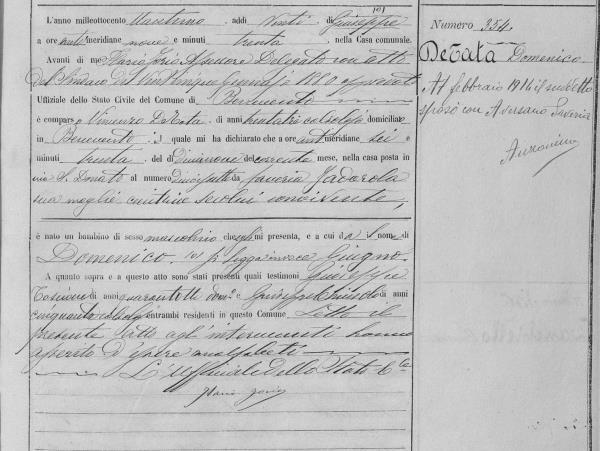 L'anno milleottocento ottantuno, addì venti di Giuseppe (o)
a ore antimeridiane nove e minuti trenta, nella Casa comunale.
Avanti di me Ilario Iorio Assessore Delegato con atto
del Sindaco del venticinque 1880
Uffiziale dello Stato Civile del Comune di Benevento
è comparso Vincenzo DeTata, di anni trentatre domiciliato
in Benevento, il quale mi ha dichiarato che a ore antimeridiane sei e
minuti trenta, del dì diecinove del corrente mese, nella casa posta in
via S. Donato al numero da Saveria Iadarola
sua moglie, seco lui convivente,
è nato un bambino di sesso mascolino che mi presenta, e a cui dà il nome di
Domenico. (o) si legga invece Giugno.
A quanto sopra e a questo atto sono stati presenti quali testimoni Giuseppe
di anni quarantotto e Giuseppe di anni
cinquanta entrambi residenti in questo Comune. Letto il
presente atto agl'intervenuti hanno
asserito d'essere analfabeti
L'uffiziale dello Stato Civ.
Ilario Iorio
Numero 354
DeTata Domenico
A 11 febbraio 1914 il suddetto
sposò con Aversano Saveria